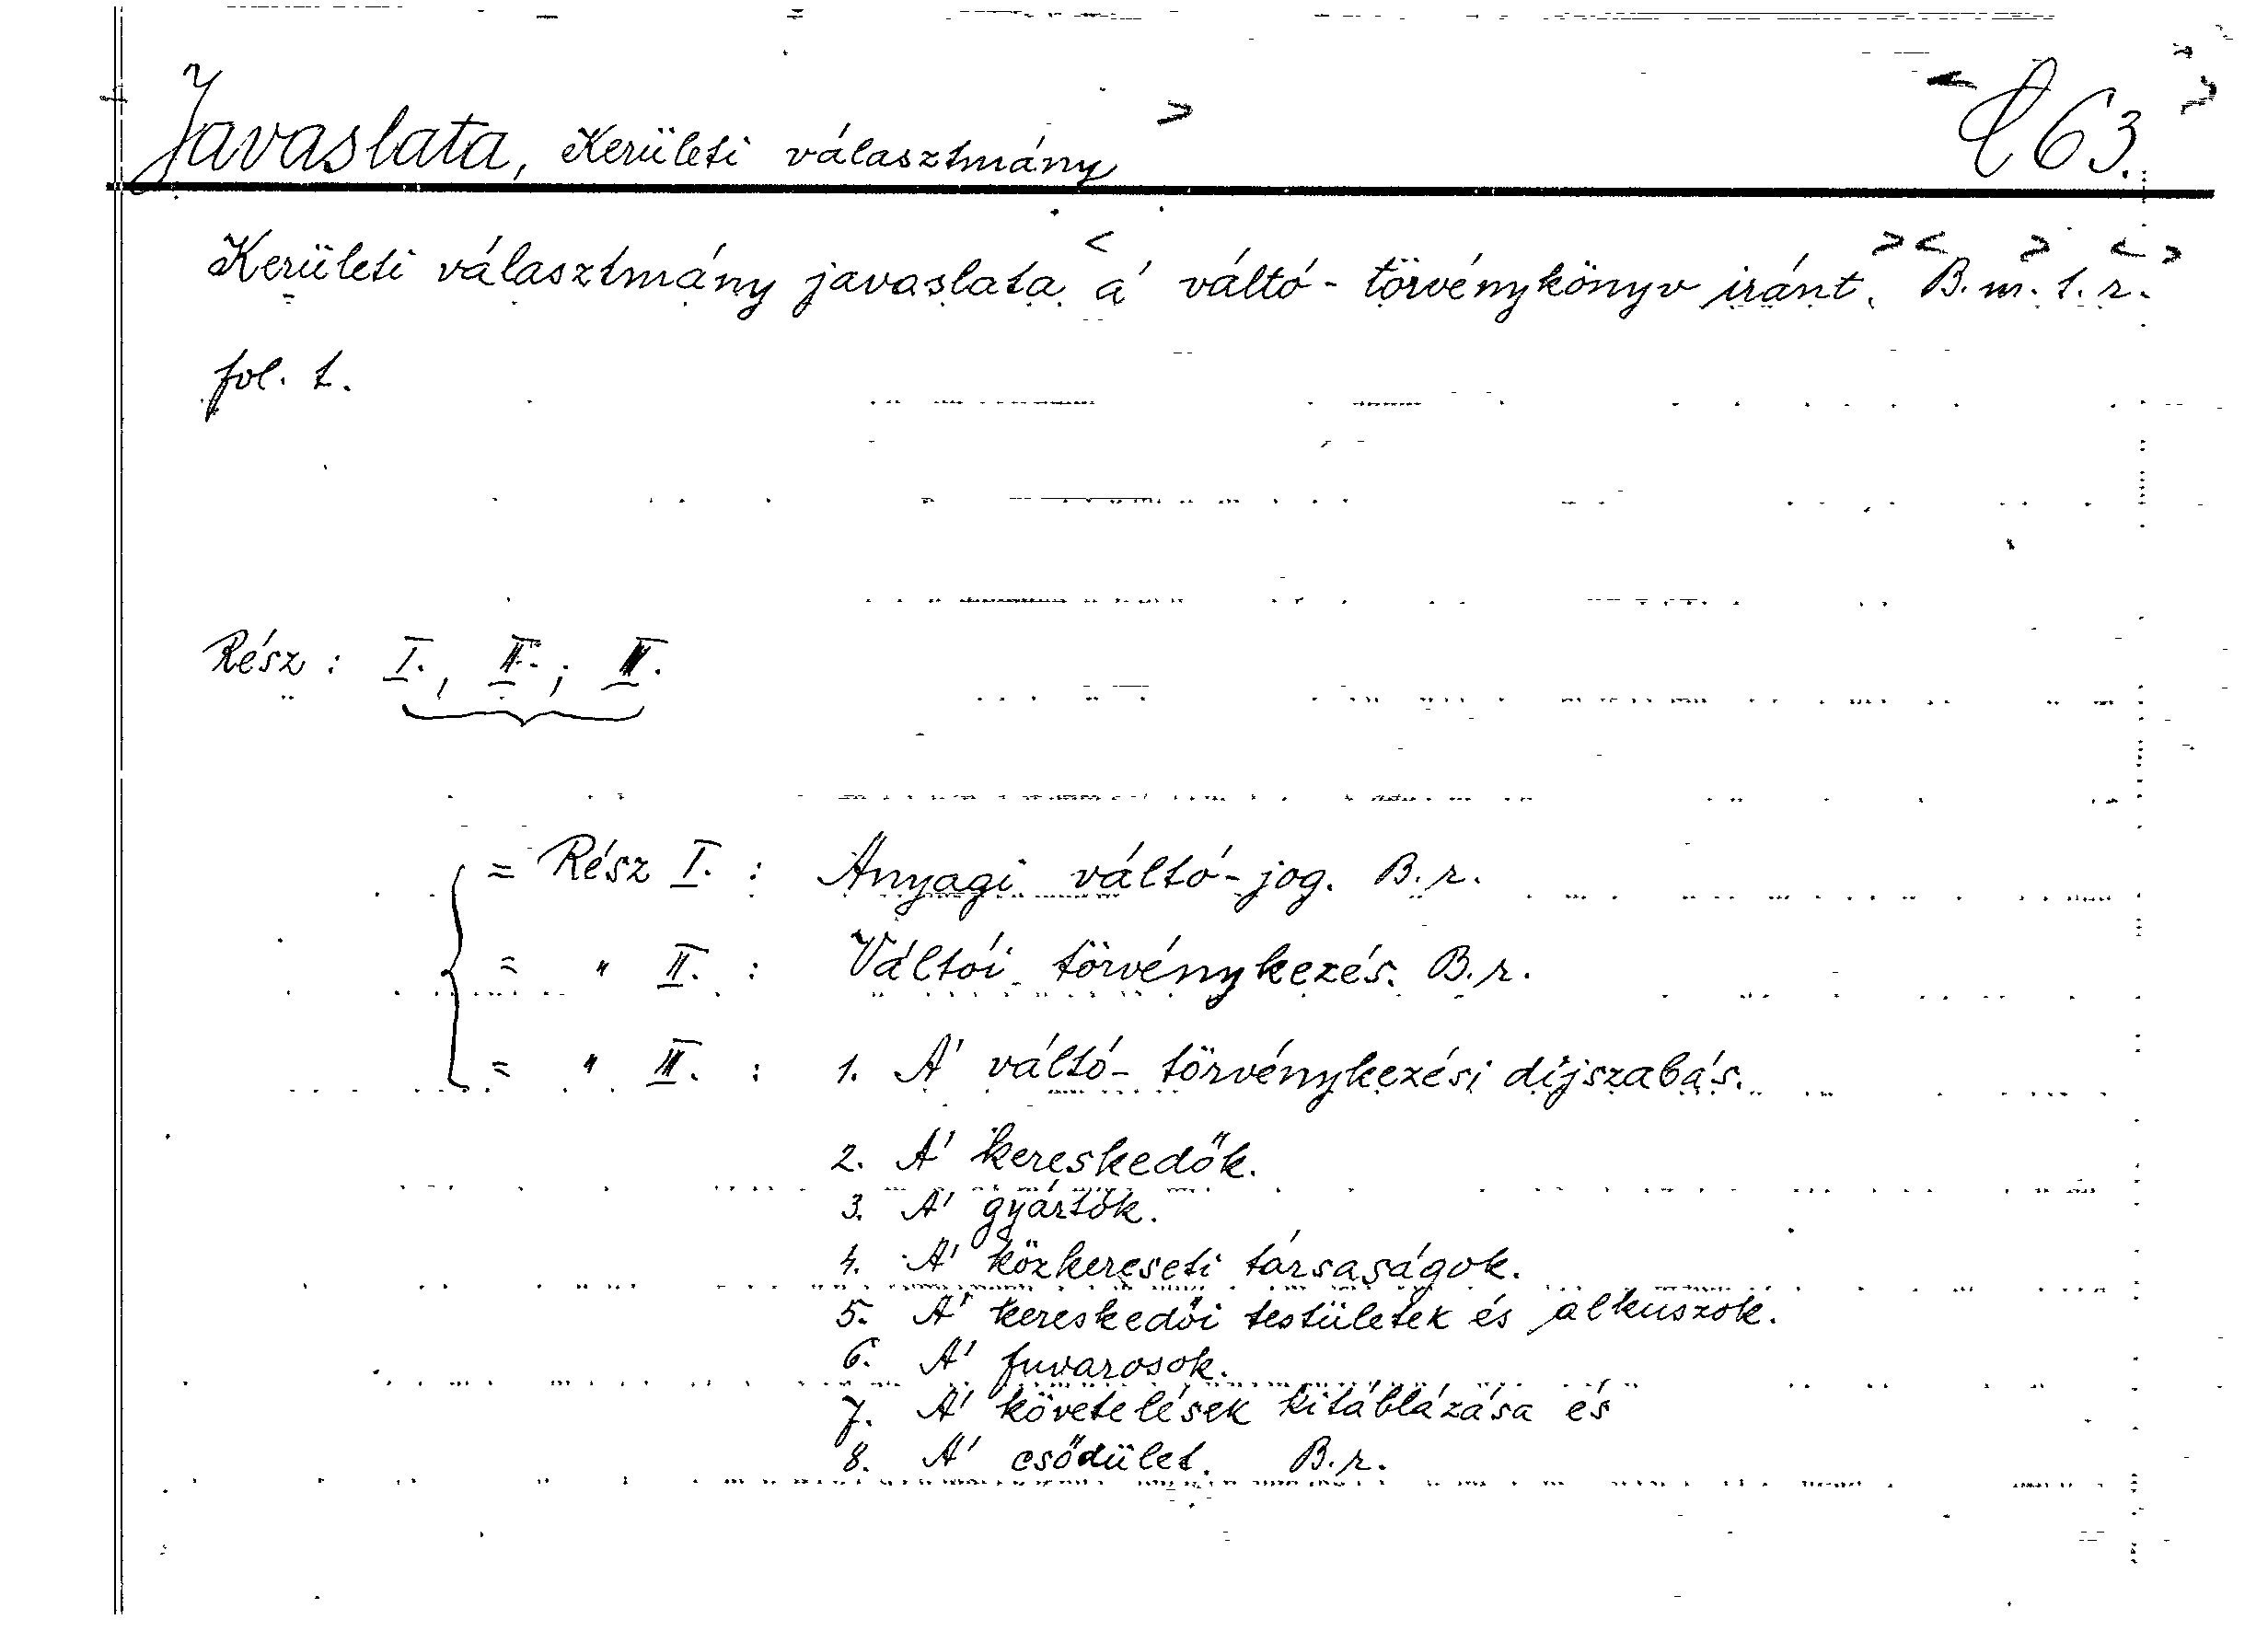 Javaslata, Kerületi választmány > < C 63. >
Kerületi választmány javaslata < a' váltó-törvénykönyv iránt. >< B. m. > 1. r. < >
fol. 1.
Rész: I., II.; III.
= Rész I. : Anyagi váltó-jog. B. r.
= " II. : Váltói törvénykezés. B. r.
= " III. : 1. A' váltó-törvénykezési díjszabás.
2. A' kereskedők.
3. A' gyártók.
4. A' közkereseti társaságok.
5. A' kereskedői testületek és alkuszok.
6. A' fuvarosok.
7. A' követelések kitáblázása és
8. A' csődület. B. r.